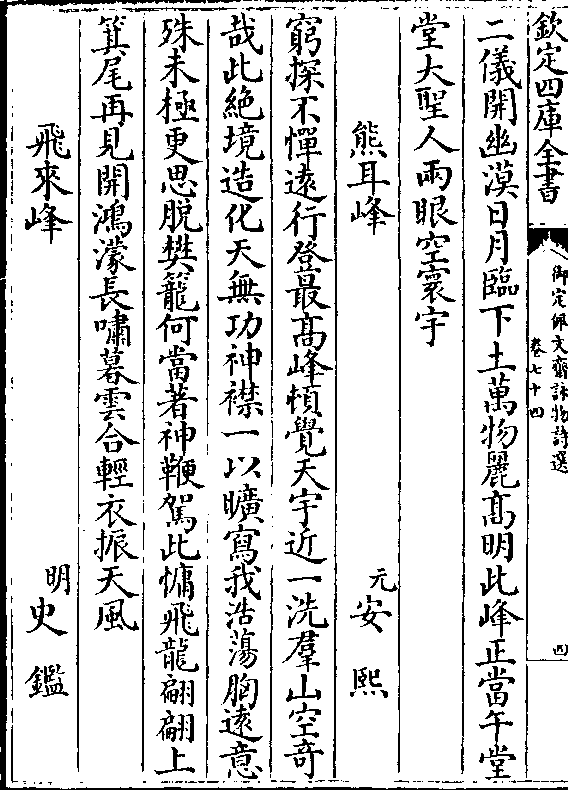 欽定四庫全書
御定佩文齋詠物詩選
卷七十四
四
二儀開幽漠日月臨下土萬物麗高明此峰正當午堂
堂大聖人兩眼空寰宇
熊耳峰
元安熙
窮探不憚遠行登最高峰頓覺天宇近一洗羣山空奇
哉此絶境造化天無功神襟一以曠寫我浩蕩胸遠意
殊未極更思脫樊籠何當著神鞭駕此慵飛龍翩翩上
箕尾再見開鴻濛長嘯暮雲合輕衣振天風
飛來峰
明史鑑